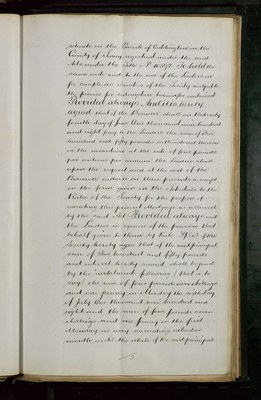 situate in the Parish of Cuddington in the
County of Surrey registered under the said
Acts under the Title No. To hold the
same unto and to the use of the Lenders in
fee simple as trustees of the Society subject to
the proviso for redemption hereinafter contained
Provided always And it is hereby
agreed that if the Borrower shall on the twenty
fourth day of June One thousand nine hundred
and eight pay to the Lenders the sum of Six
hundred and fifty pounds with interest thereon
in the meantime at the rate of four pounds
per centum per annum the Lenders shall
upon the request and at the cost of the
Borrower indorse on these presents a receipt
in the form given in the Schedule to the
Rules of the Society for the purpose of
vacating this present Mortgage as allowed
by the said Act Provided always and
the Lenders in exercise of the power in that
behalf given to them by Rule of the
Society hereby agree that if the said principal
sum of Six hundred and fifty pounds
and interest hereby secured shall be paid
by the instalments following (that is to
say) the sum of four pounds seven shillings
and one penny on Monday the sixth day
of July One thousand nine hundred and
eight and the sum of four pounds seven
shillings and one penny on the first
Monday in every succeeding calendar
month until the whole of the said principal